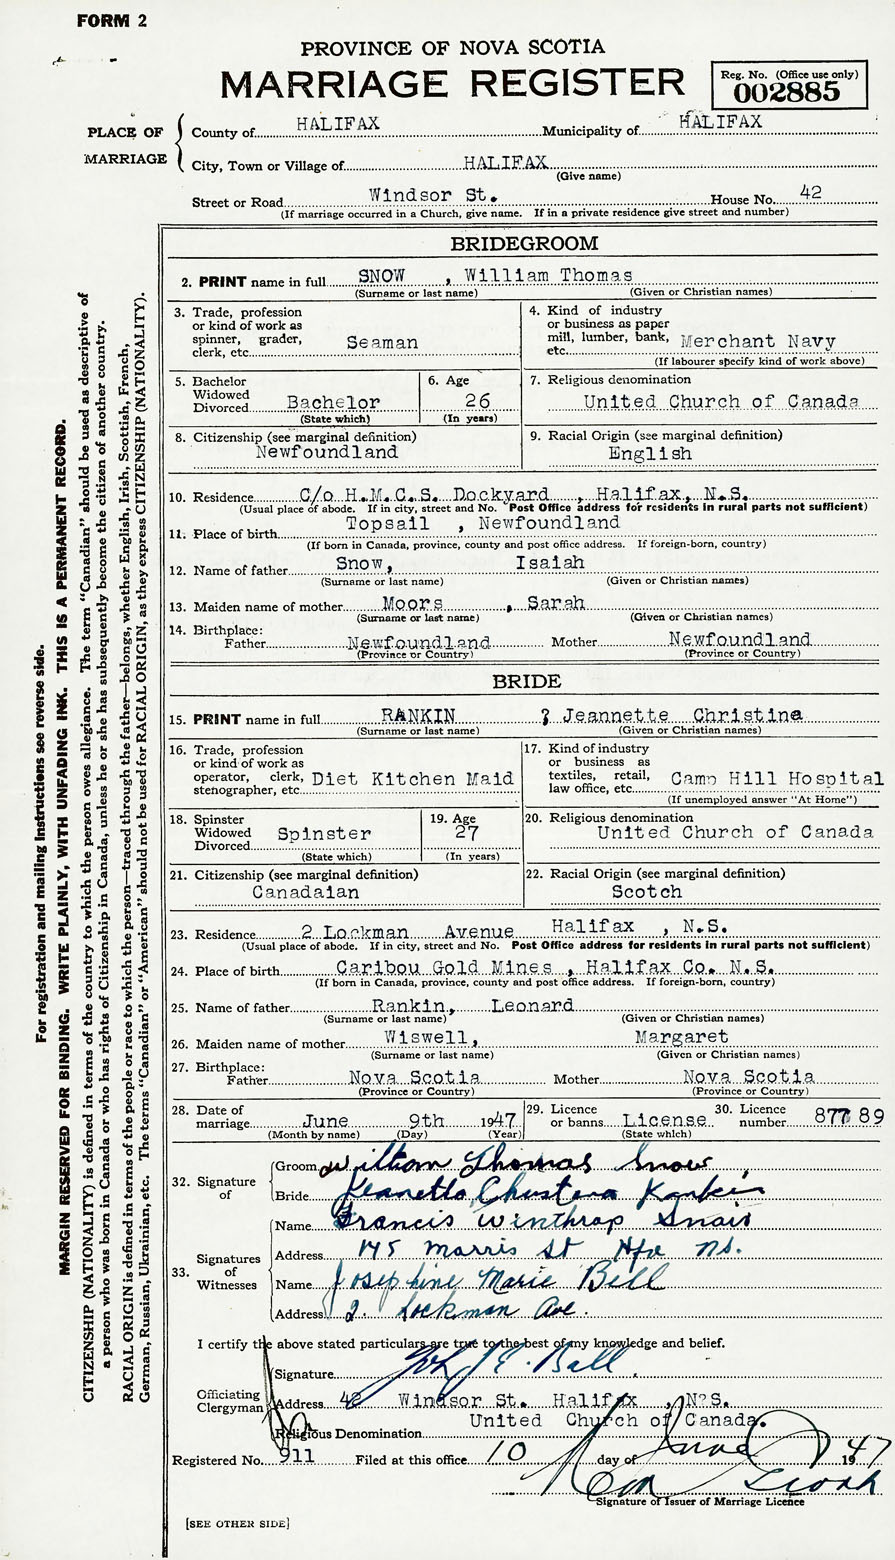 FORM 2
PROVINCE OF NOVA SCOTIA
MARRIAGE REGISTER
Reg. No. (Office use only)
002885
PLACE OF MARRIAGE
County of HALIFAX Municipality of HALIFAX
City, Town or Village of HALIFAX
(Give name)
Street or Road Windsor St. House No. 42
(If marriage occurred in a Church, give name. If in a private residence give street and number)
BRIDEGROOM
2. PRINT name in full SNOW , William Thomas
(Surname or last name) (Given or Christian names)
3. Trade, profession or kind of work as spinner, grader, clerk, etc. Seaman
4. Kind of industry or business as paper mill, lumber, bank, etc. Merchant Navy
(If labourer specify kind of work above)
5. Bachelor Widowed Divorced Bachelor
(State which)
6. Age 26
(In years)
7. Religious denomination
United Church of Canada
8. Citizenship (see marginal definition)
Newfoundland
9. Racial Origin (see marginal definition)
English
10. Residence C/o H.M.C.S. Dockyard , Halifax, N.S.
(Usual place of abode. If in city, street and No. Post Office address for residents in rural parts not sufficient)
11. Place of birth Topsail , Newfoundland
(If born in Canada, province, county and post office address. If foreign-born, country)
12. Name of father Snow, Isaiah
(Surname or last name) (Given or Christian names)
13. Maiden name of mother Moors , Sarah
(Surname or last name) (Given or Christian names)
14. Birthplace:
Father Newfoundland Mother Newfoundland
(Province or Country) (Province or Country)
BRIDE
15. PRINT name in full RANKIN ? Jeannette Christina
(Surname or last name) (Given or Christian names)
16. Trade, profession or kind of work as operator, clerk, stenographer, etc. Diet Kitchen Maid
17. Kind of industry or business as textiles, retail, law office, etc. Camp Hill Hospital
(If unemployed answer "At Home")
18. Spinster Widowed Divorced Spinster
(State which)
19. Age 27
(In years)
20. Religious denomination
United Church of Canada
21. Citizenship (see marginal definition)
Canadaian
22. Racial Origin (see marginal definition)
Scotch
23. Residence 2 Lockman Avenue Halifax , N.S.
(Usual place of abode. If in city, street and No. Post Office address for residents in rural parts not sufficient)
24. Place of birth Caribou Gold Mines , Halifax Co. N.S.
(If born in Canada, province, county and post office address. If foreign-born, country)
25. Name of father Rankin, Leonard
(Surname or last name) (Given or Christian names)
26. Maiden name of mother Wiswell, Margaret
(Surname or last name) (Given or Christian names)
27. Birthplace:
Father Nova Scotia Mother Nova Scotia
(Province or Country) (Province or Country)
28. Date of marriage June 9th 1947
(Month by name) (Day) (Year)
29. Licence or banns License
(State which)
30. Licence number 87789
32. Signature of
Groom William Thomas Snow
Bride Jeanette Christena Rankin
33. Signatures of Witnesses
Name Francis Winthrop
Address 175 Morris St Hfx N.S.
Name Josephine Marie Bell
Address 2. Lockman Ave.
I certify the above stated particulars are true to the best of my knowledge and belief.
Officiating Clergyman
Signature
Address 42 Windsor St. Halifax , N.S.
United Church of Canada.
Religious Denomination
Registered No. 911 Filed at this office 10 day of June 1947
Signature of Issuer of Marriage Licence
[SEE OTHER SIDE]
For registration and mailing instructions see reverse side.
MARGIN RESERVED FOR BINDING. WRITE PLAINLY, WITH UNFADING INK. THIS IS A PERMANENT RECORD.
CITIZENSHIP (NATIONALITY) is defined in terms of the country to which the person owes allegiance. The term "Canadian" should be used as descriptive of
a person who was born in Canada or who has rights of Citizenship in Canada, unless he or she has subsequently become the citizen of another country.
RACIAL ORIGIN is defined in terms of the people or race to which the person—traced through the father—belongs, whether English, Irish, Scottish, French,
German, Russian, Ukrainian, etc. The terms "Canadian" or "American" should not be used for RACIAL ORIGIN, as they express CITIZENSHIP (NATIONALITY).